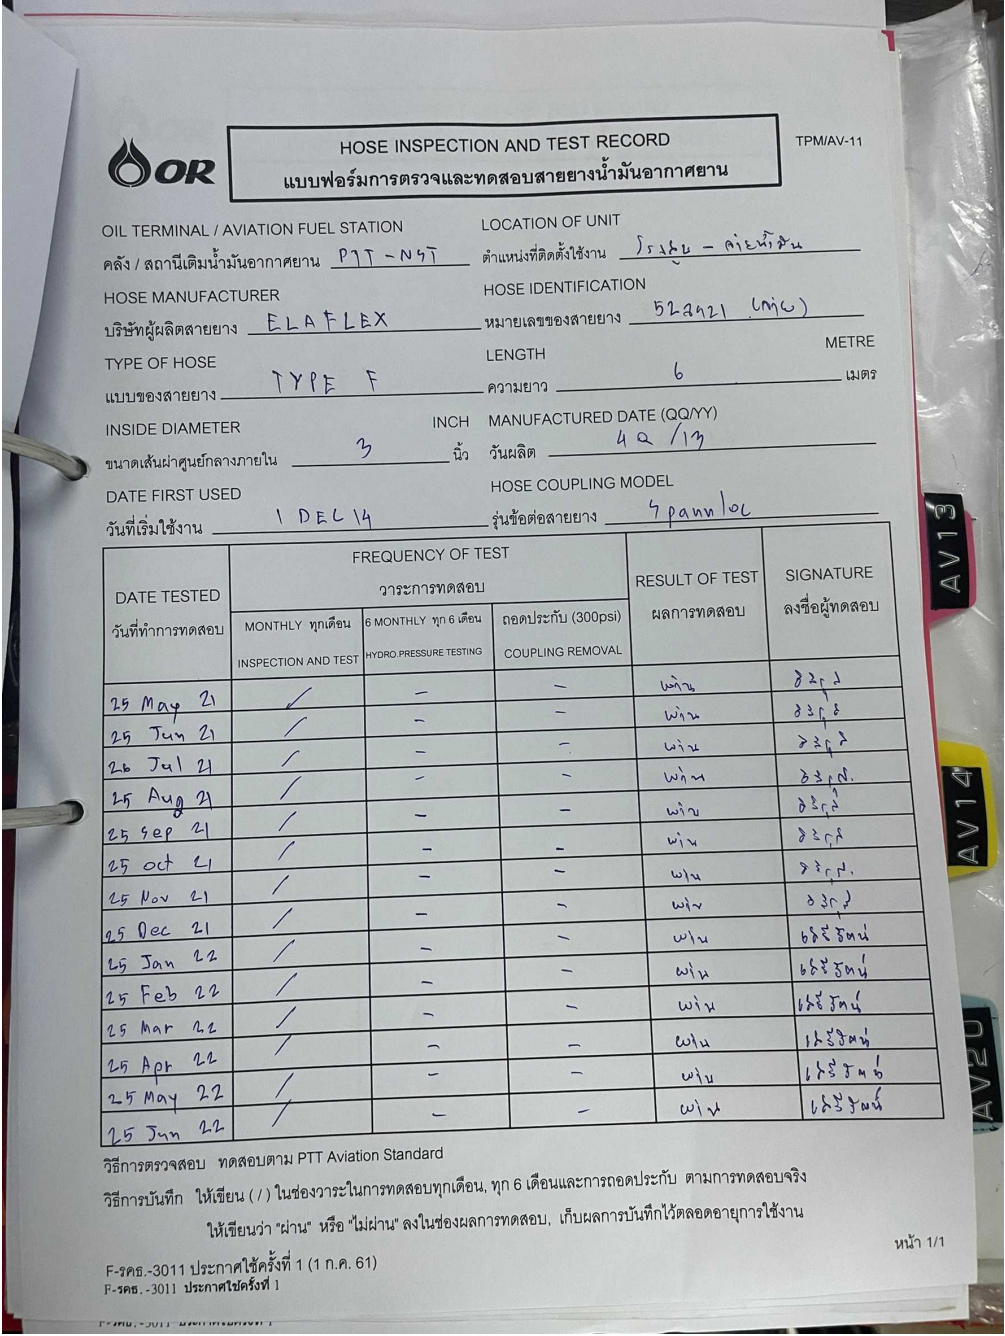 OR
HOSE INSPECTION AND TEST RECORD
แบบฟอร์มการตรวจและทดสอบสายยางน้ำมันอากาศยาน
TPM/AV-11
OIL TERMINAL / AVIATION FUEL STATION
คลัง / สถานีเติมน้ำมันอากาศยาน PTT-NST
LOCATION OF UNIT
ตำแหน่งที่ติดตั้งใช้งาน โรงสูบ - จ่ายน้ำมัน
HOSE MANUFACTURER
บริษัทผู้ผลิตสายยาง ELAFLEX
HOSE IDENTIFICATION
หมายเลขของสายยาง
TYPE OF HOSE
แบบของสายยาง TYPE F
LENGTH METRE
ความยาว 6 เมตร
INSIDE DIAMETER INCH
ขนาดเส้นผ่าศูนย์กลางภายใน 3 นิ้ว
MANUFACTURED DATE (QQ/YY)
วันผลิต 4Q/13
DATE FIRST USED
วันที่เริ่มใช้งาน 1 DEC 14
HOSE COUPLING MODEL
รุ่นข้อต่อสายยาง Spannloc
DATE TESTED
วันที่ทำการทดสอบ
FREQUENCY OF TEST
วาระการทดสอบ
MONTHLY ทุกเดือน
INSPECTION AND TEST
6 MONTHLY ทุก 6 เดือน
HYDRO.PRESSURE TESTING
ถอดประกับ (300psi)
COUPLING REMOVAL
RESULT OF TEST
ผลการทดสอบ
SIGNATURE
ลงชื่อผู้ทดสอบ
25 May 21 / - - ผ่าน
25 Jun 21 / - - ผ่าน
26 Jul 21 / - - ผ่าน
25 Aug 21 / - - ผ่าน
25 Sep 21 / - - ผ่าน
25 Oct 21 / - - ผ่าน
25 Nov 21 / - - ผ่าน
25 Dec 21 / - - ผ่าน
25 Jan 22 / - - ผ่าน
25 Feb 22 / - - ผ่าน
25 Mar 22 / - - ผ่าน
25 Apr 22 / - - ผ่าน
25 May 22 / - - ผ่าน
25 Jun 22 / - - ผ่าน
วิธีการตรวจสอบ ทดสอบตาม PTT Aviation Standard
วิธีการบันทึก ให้เขียน ( / ) ในช่องวาระในการทดสอบทุกเดือน, ทุก 6 เดือนและการถอดประกับ ตามการทดสอบจริง
ให้เขียนว่า "ผ่าน" หรือ "ไม่ผ่าน" ลงในช่องผลการทดสอบ, เก็บผลการบันทึกไว้ตลอดอายุการใช้งาน
หน้า 1/1
F-รคธ.-3011 ประกาศใช้ครั้งที่ 1 (1 ก.ค. 61)
F-รคธ.-3011 ประกาศใช้ครั้งที่ 1
AV13
AV14
AV20